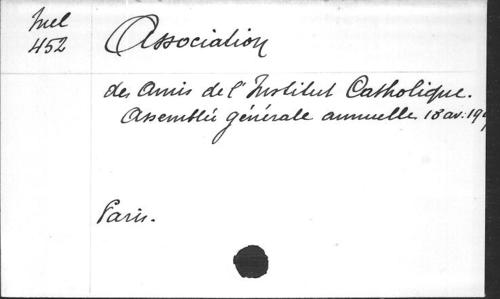 Mel
452
Association
des Amis de l'Institut Catholique.
Assemblée générale annuelle 18 av: 19
Paris.